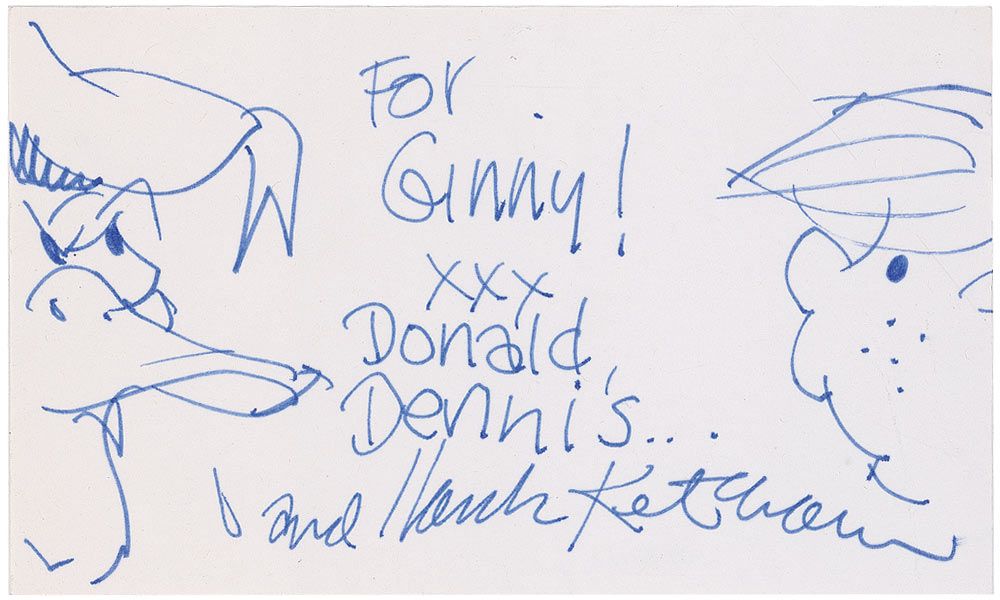 For
Ginny!
xxx
Donald,
Dennis...
and Hank Ketcham